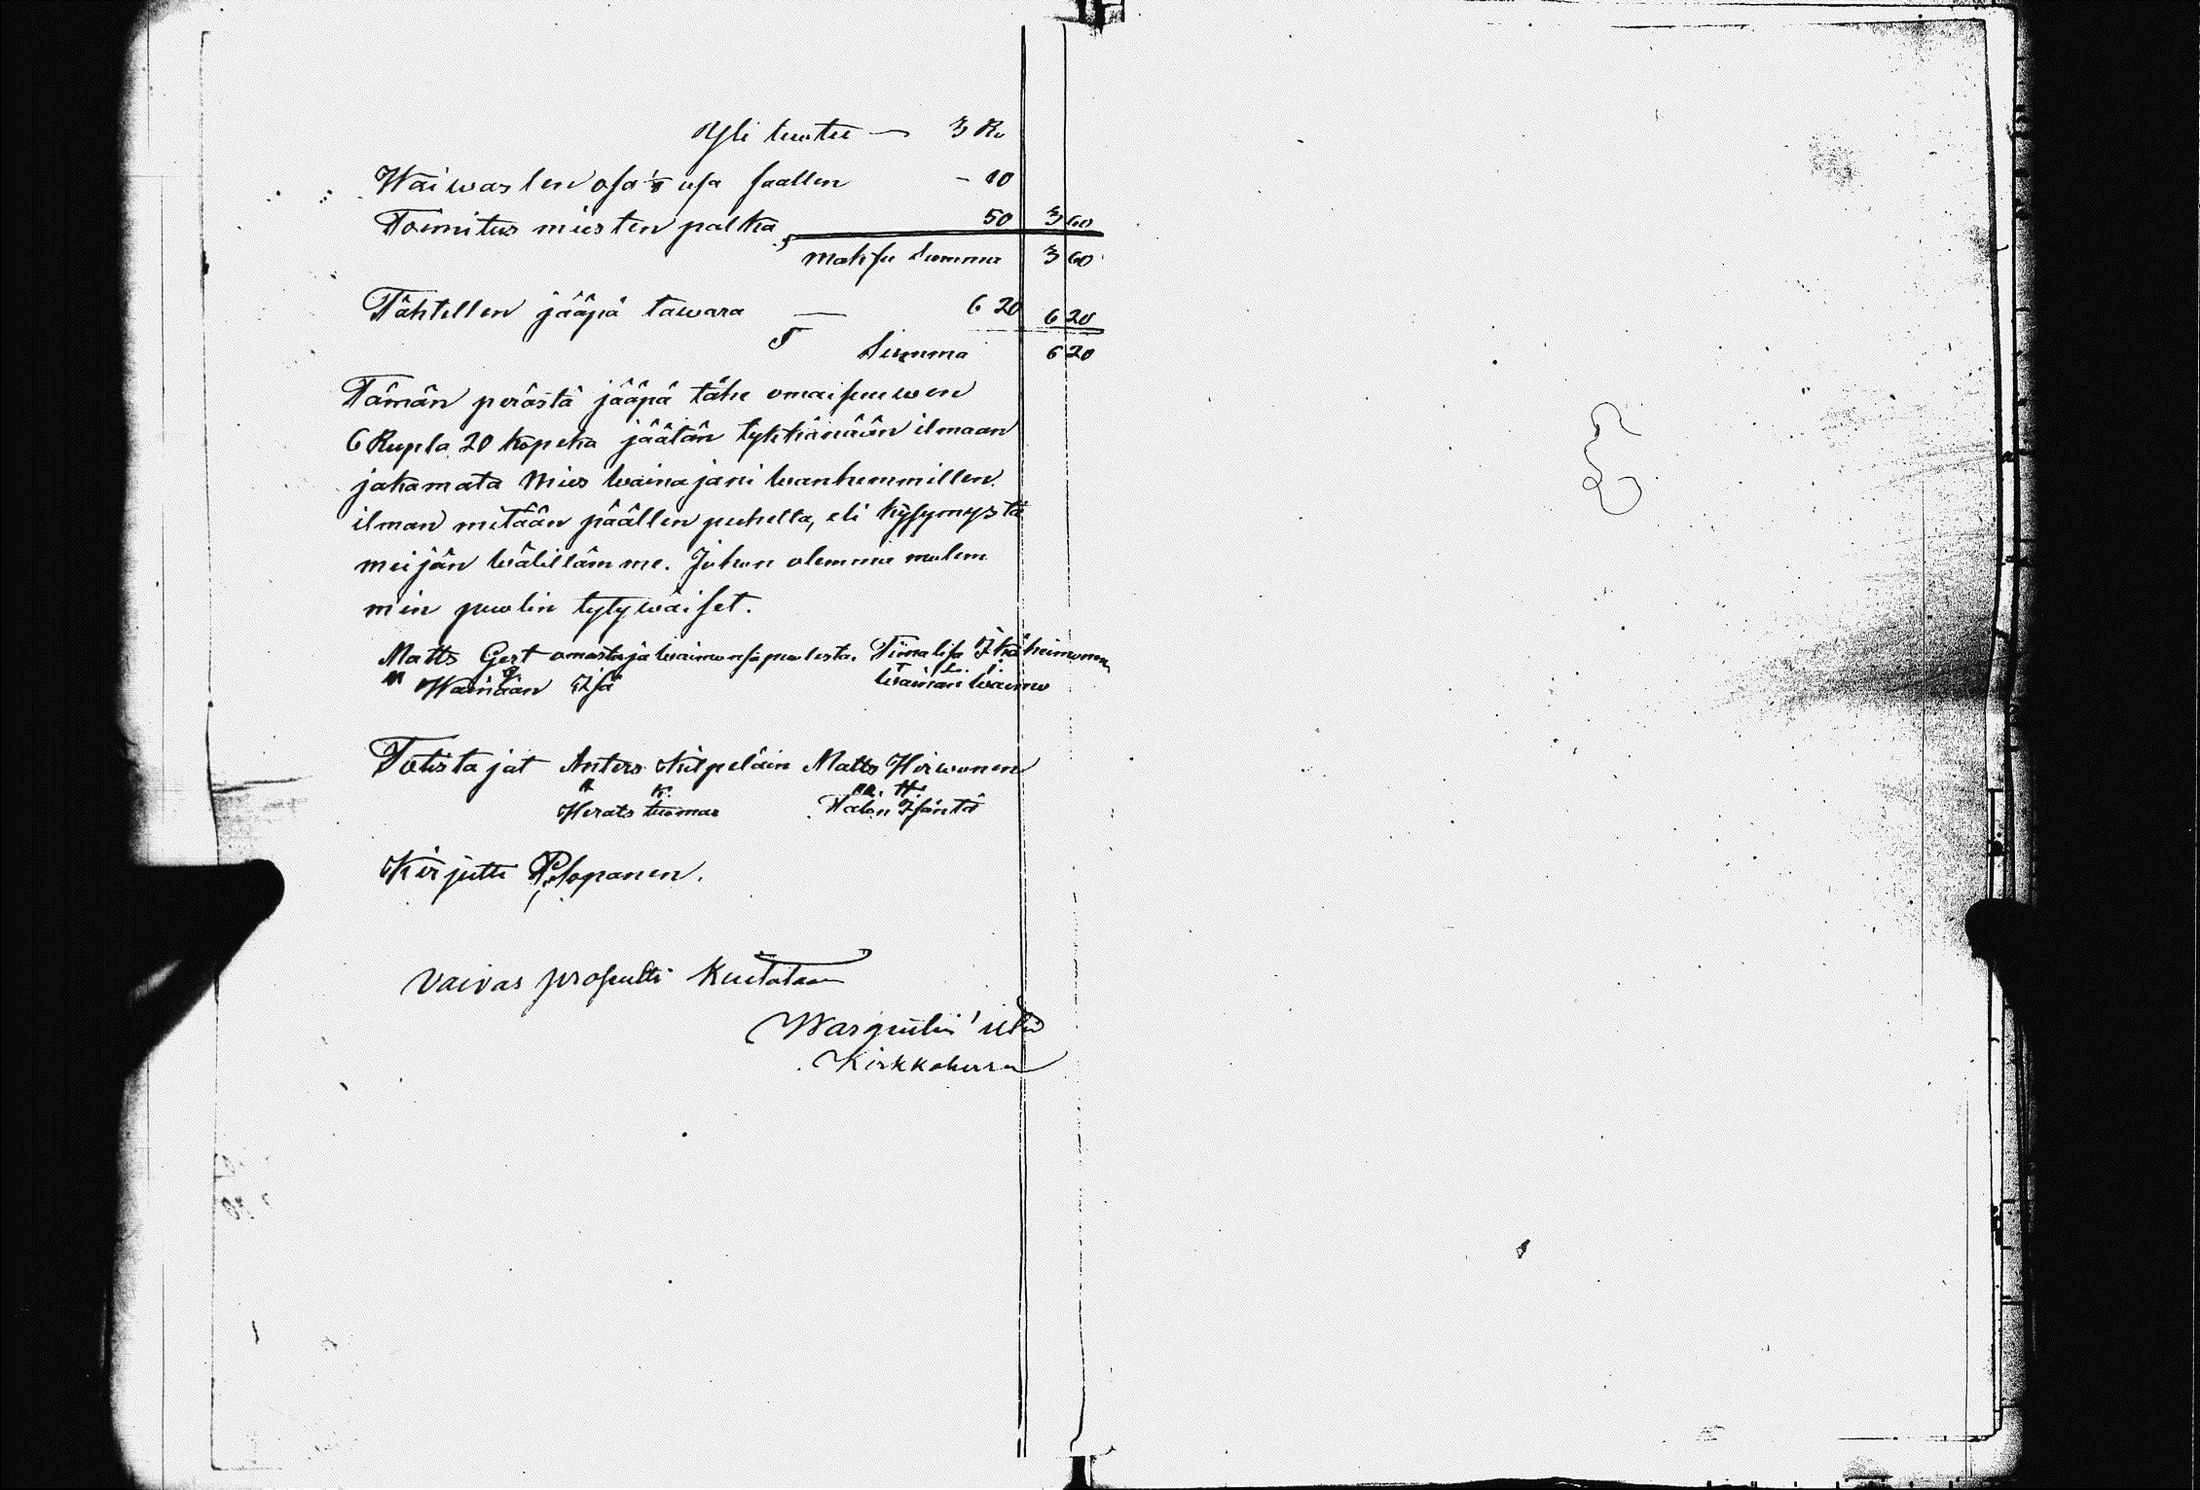 Yli tuotu — 3 Ru
Waiwasten osa's osa saallen — 10
Toimitus miesten palka 50 3 60
maksu Summa 3 60
Tähtellen jääpä tawara — 6 20 6 20
Summa 6 20
Tämän perästä jääpä tähe omaisuuwen
6 Rupla 20 kopeka jäätän tykkänään ilmaan
jakamata Mies wainajani wanhemmillen
ilman mitään päällen puhetta, eli kysymystä
meijän wälillämme. Johon olemma molem
min puolin tytywäiset.
Matts Gert omasta ja waimonsa puolesta. Tiina lisa Ikäheimonen
M G T L I
Wainaan Isä Wainan Waimo
Totistajat Anters Kilpeläin Matts Hirwonen
A K. M. H.
Herats tuomar Talon Isäntä
Kirjutti Pelopanen.
Vaivas prosentti kuitataan
Kirkkoherra